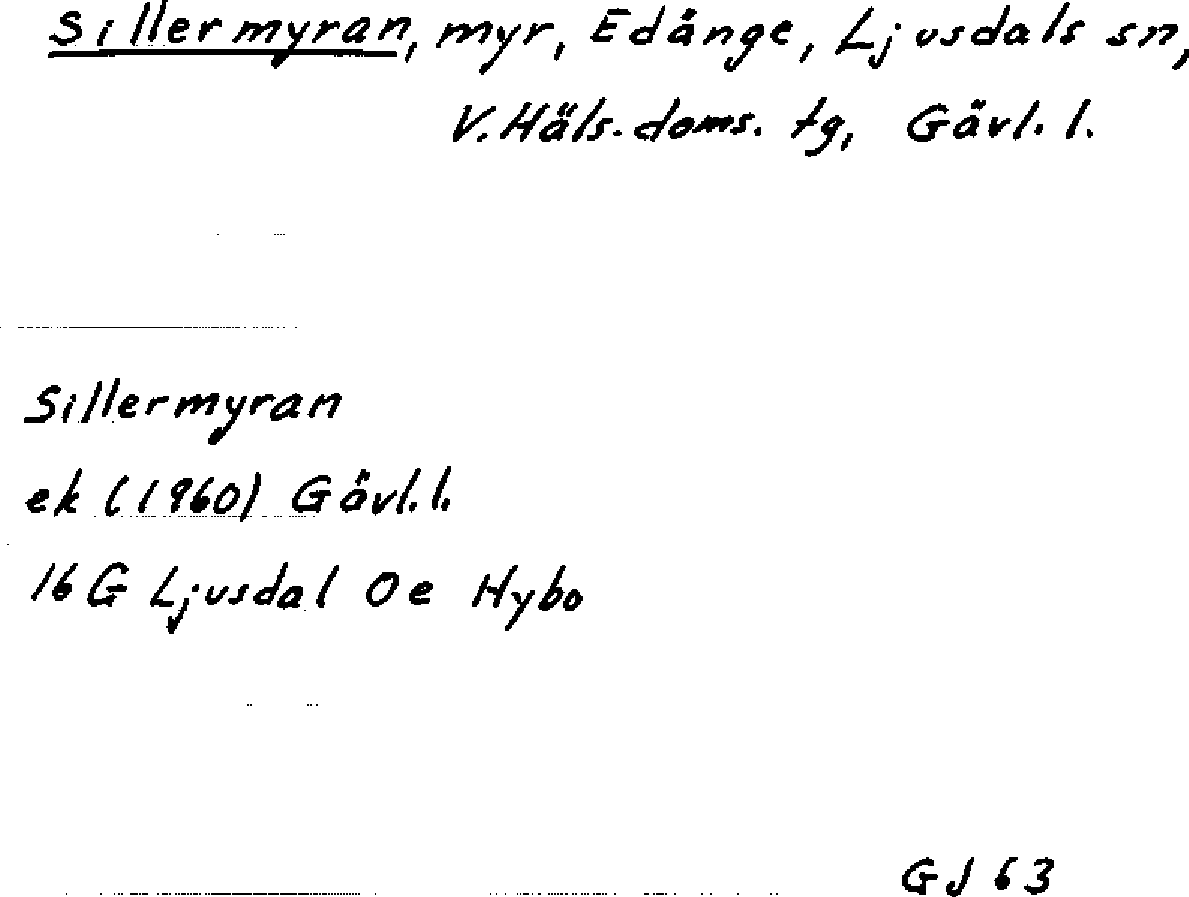 Sillermyran, myr, Edånge, Ljusdals sn,
V. Häls. doms. tg, Gävl. l.
Sillermyran
ek (1960) Gävl. l.
16 G Ljusdal 0 e Hybo
GJ 63